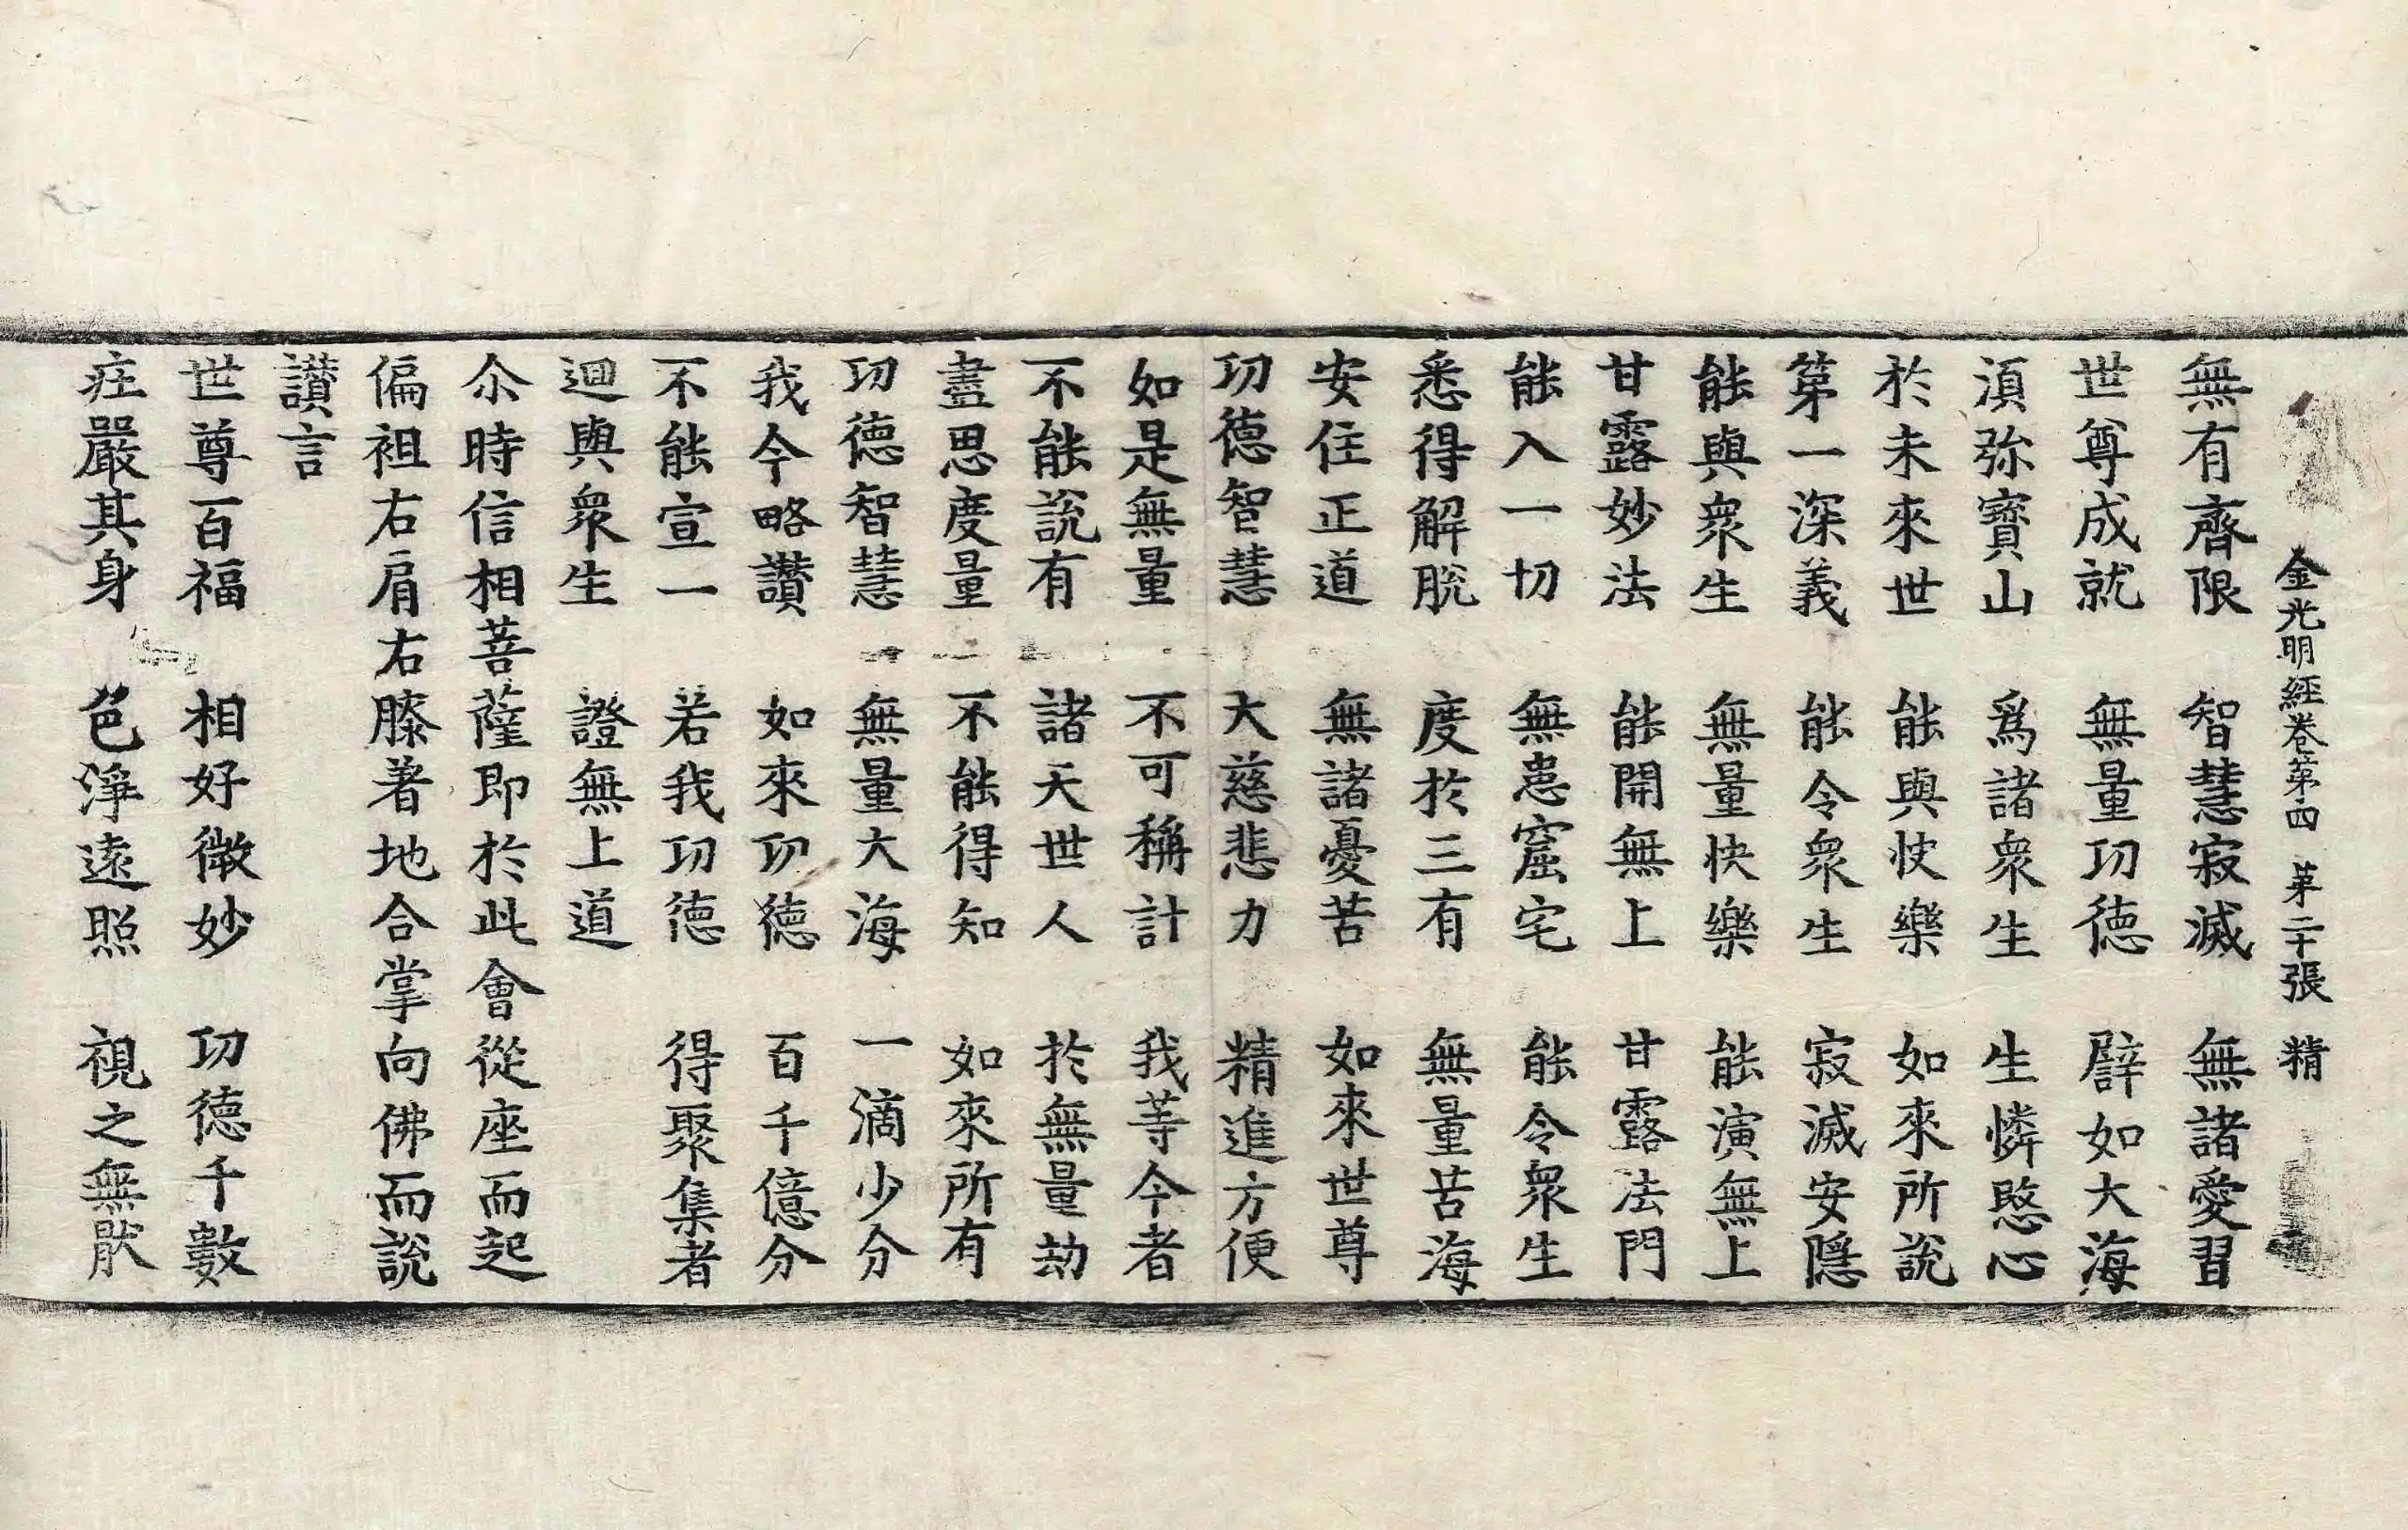 金光明經卷第四　第二十張　精
無有齊限　智慧寂滅　無諸愛習
世尊成就　無量功德　譬如大海
湏弥寶山　爲諸衆生　生憐愍心
於未來世　能與快樂　如來所說
第一深義　能令衆生　寂滅安隱
能與衆生　無量快樂　能演無上
甘露妙法　能開無上　甘露法門
能入一切　無患窟宅　能令衆生
悉得解脫　度於三有　無量苦海
安住正道　無諸憂苦　如來世尊
功德智慧　大慈悲力　精進方便
如是無量　不可稱計　我等今者
不能說有　諸天世人　於無量劫
盡思度量　不能得知　如來所有
功德智慧　無量大海　一滴少分
我今略讃　如來功德　百千億分
不能宣一　若我功德　得聚集者
迴與衆生　證無上道
尒時信相菩薩即於此會從座而起
偏袒右肩右膝著地合掌向佛而說
讃言
世尊百福　相好微妙　功德千數
庄嚴其身　色淨遠照　視之無猒